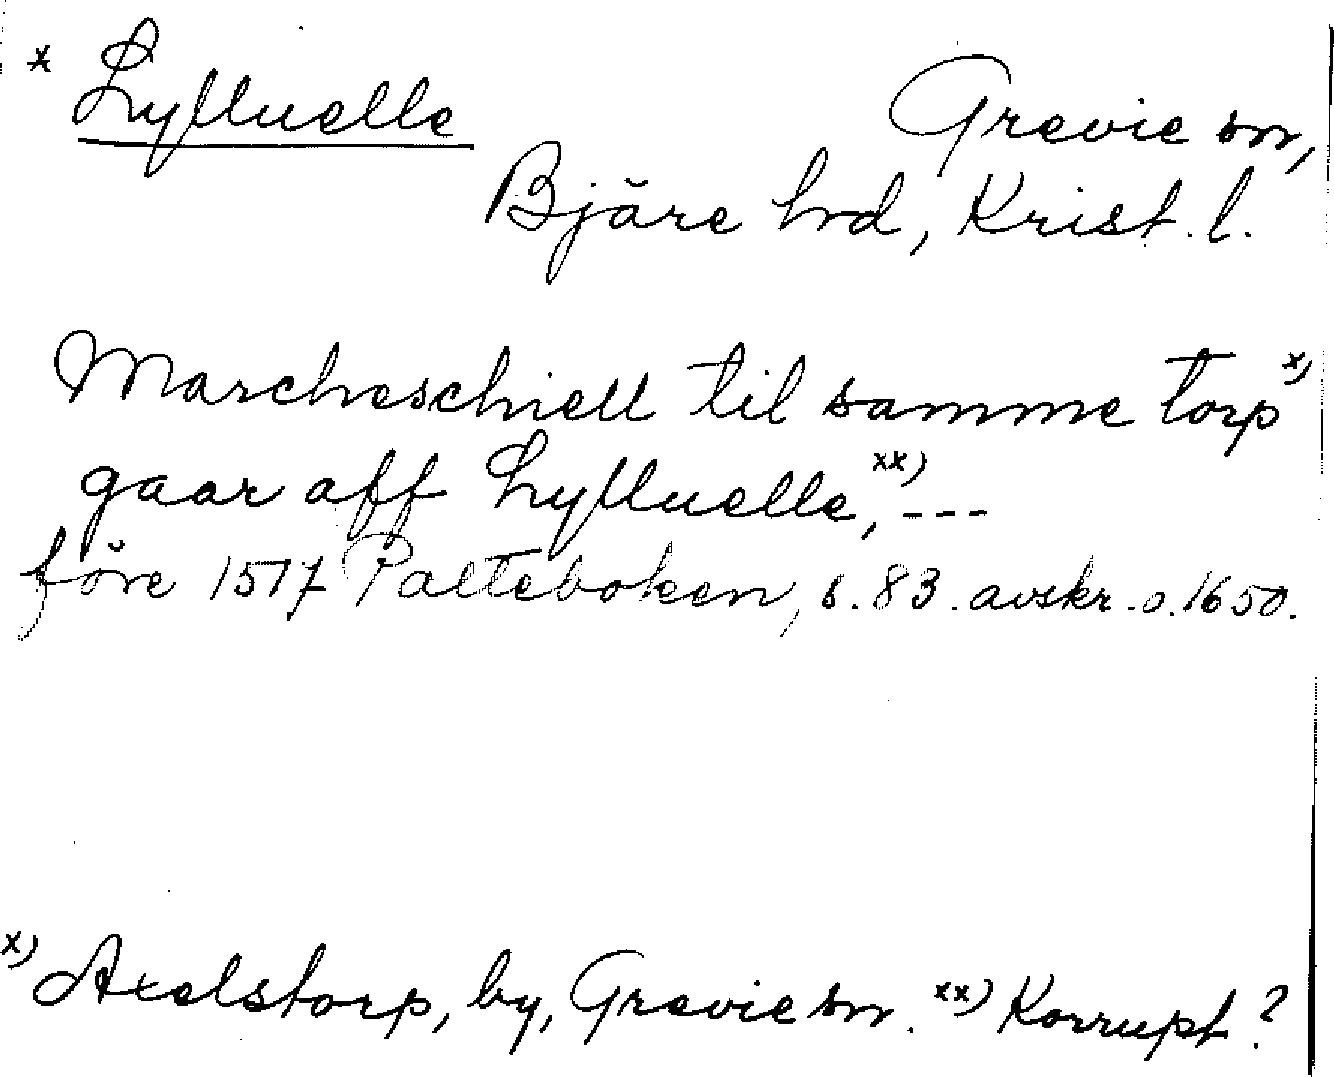 * Lyflluelle
Grevie sn,
Bjäre hrd, Krist. l.
Marcheschiell til samme torp x)
gaar aff Lyflluelle, xx) ---
före 1517 Palteboken, s. 83. avskr. o. 1650.
x) Axelstorp, by, Grevie sn. xx) Korrupt?